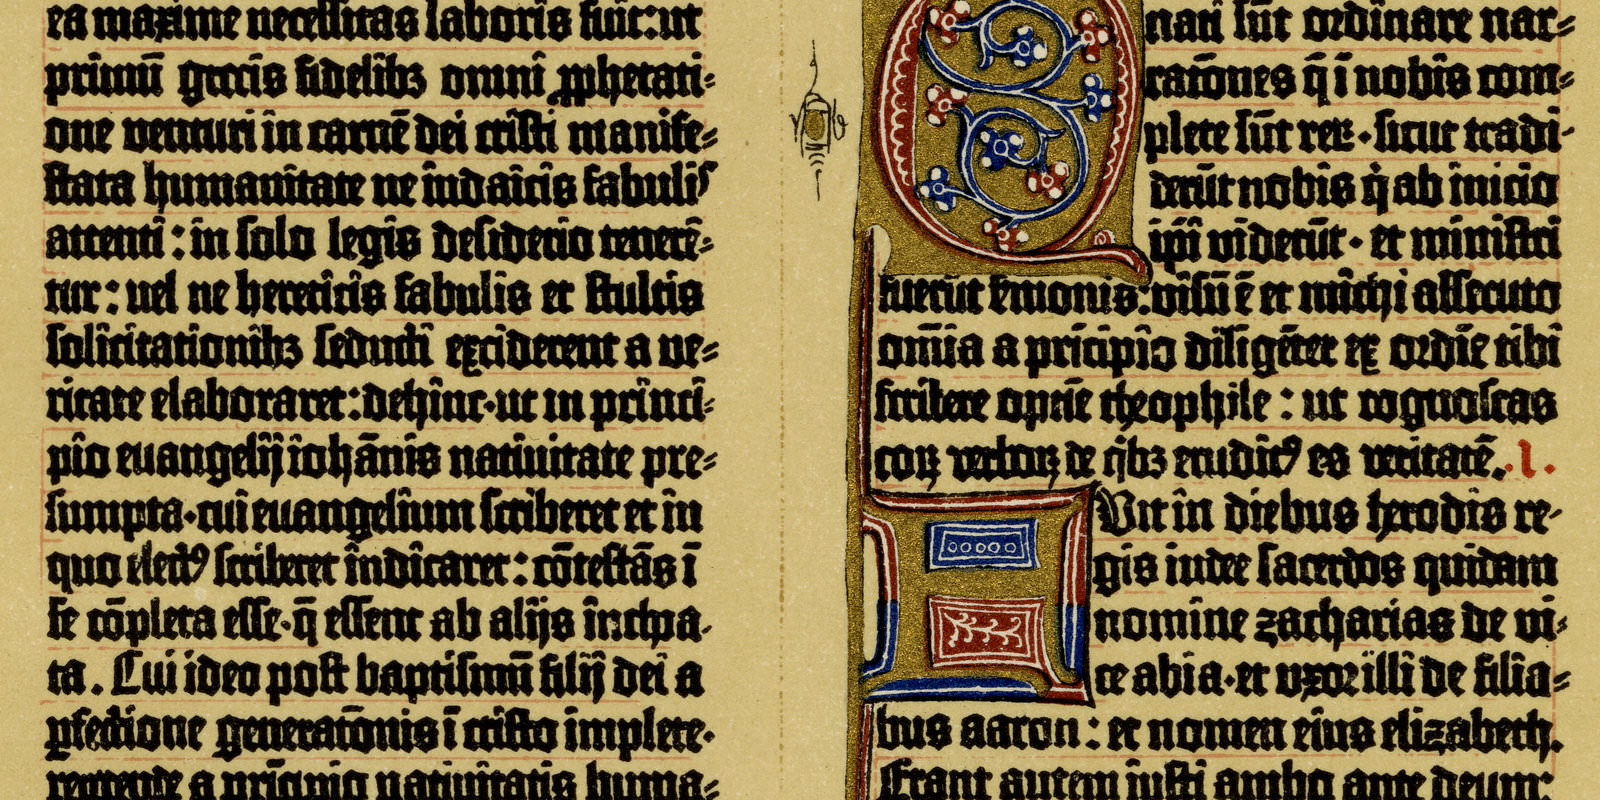 ea maxime necessitas laboris fuit: ut
primū grecis fidelibꝫ omni ꝓphetati⸗
one venturi in carnē dei cristi manife⸗
stata humanitate ne iudaicis fabulis
attenti: in solo legis desiderio tenerē⸗
tur: vel ne hereticis fabulis et stultis
solicitationibꝫ seducti exciderent a ve⸗
ritate elaboraret: dehinc · ut in princi⸗
pio euangelij iohānis natiuitate pre⸗
sumpta · cui euangelium scriberet et in
quo electꝰ scriberet indicaret: cōtestās ī
se cōpleta esse · q̄ essent ab alijs inchoa⸗
ta. Cui ideo post baptismū filij dei a
ꝑfectione generatōnis ī cristo implete ·
repetende a principio natiuitatis huma⸗
nati sūt ordinare nar⸗
ratōnes q̄ ī nobis com⸗
plete sūt reꝝ · sicut tradi⸗
derūt nobis q̇ ab inicio
ip̄i viderūt · et ministri
fuerūt s̄monis: visū ē et michi assecuto
om̄ia a pricipio diligēter ex ordīe tibi
scribere optīe theophile: ut cognoscas
eoꝝ verboꝝ de q̇bꝫ eruditꝰ es veritatē. · I ·
Fuit in diebus herodis re⸗
gis iudee sacerdos quidam
nomine zacharias de vi⸗
ce abia · et uxor illi de filia⸗
bus aaron: et nomen eius elizabeth.
Erant autem iusti ambo ante deum: